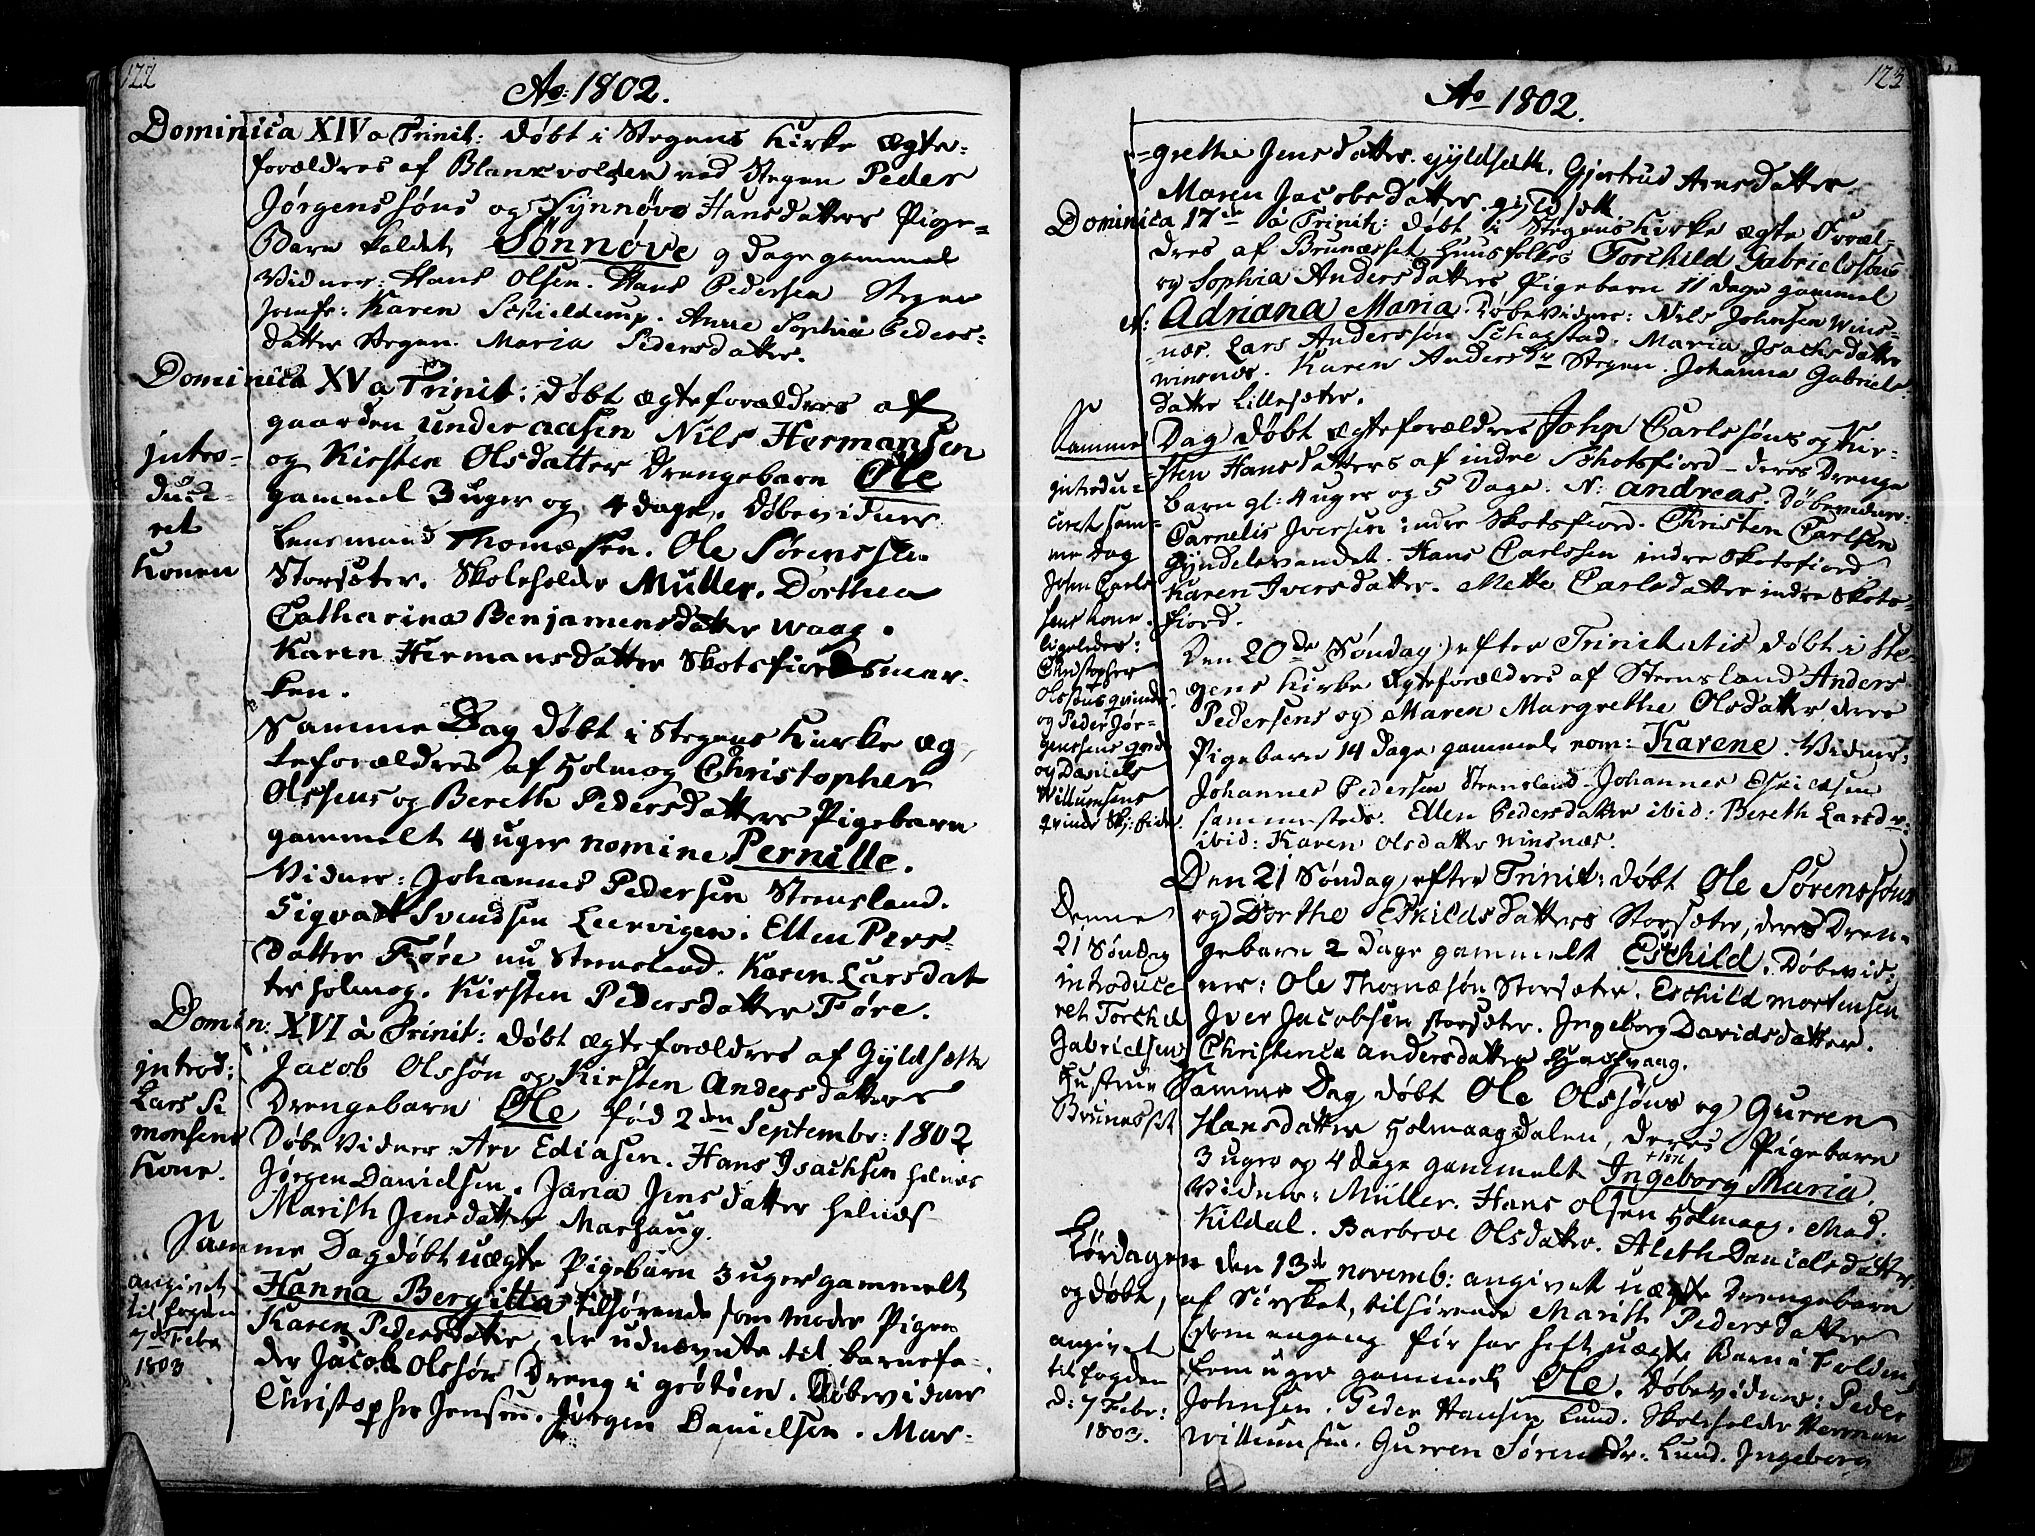 122
Ao: 1802.
Dominica XIV a Trinit: døbt i Stegens Kirke Ægte-
forældres af Blanxvolden ved Stegen Peder
Jørgenssøns og Synnøve Hansdatters Pige-
Barn kaldet Sønnøve 9 Dage gammel
Vidner: Hans Olsen. Hans Pedersen Stegen
Jomfr: Karen Schieldrup. Anne Sophia Peders-
datter Stegen. Maria Pedersdatter.
Dominica XV a Trinit: døbt ægteforældres af
gaarden underaasen Nils Hermansen
og Kirsten Olsdatter Drengebarn Ole
gammel 3 uger og 4 dage. Døbevidner
Lensmand Thomæsen. Ole Sørenssen
Storsæter. Skoleholder Müller. Dorthea
Catharina Benjamensdatter Waag.
Karen Hermansdatter Skotsfiordsmar-
ken.
intro-
duce-
ret
Konen
Samme Dag døbt i Stegens Kirke æg-
teforældres af Holmog Christopher
Olssens og Bereth Pedersdatters Pigebarn
gammelt 4 uger nomine Pernille.
Vidner: Johannes Pedersen Steensland.
Sigvart Svendsen Leervigen. Ellen Pers-
datter Føre nu Steensland. Karen Larsdat
ter holmog. Kirsten Pedersdatter Føre.
Domin: XVI a Trinit: døbt ægteforældres af Gyldsætte
Jacob Olssøn og Kirsten Andersdatters
Drengebarn Ole fød 2den Septembr: 1802
Døbe Vidner Arv Ediasen. Hans Isachsen Helnæs
Jørgen Danielsen. Jana Jensdatter Helnæs
Marith Jensdatter Marhaug.
introd:
Lars Si
monsens
Kone.
Samme Dag døbt uægte Pigebarn 3 uger gammelt
Hanna Bergitta tilhørende som moder Pigen
Karen Pedersdatter, der udnævnte til barnefa-
der Jacob Olssøn Dreng i grøtøen. Døbevidner
Christopher Jensen. Jørgen Danielsen. Mar-
angivet
til fogden
7de Febr
1803
123
Ao 1802.
-grethe Jensdatter. Gyldsæth. Gjertrud Arnsdatter
Maren Jacobsdatter. gyldsætt.
Dominica 17de a Trinit: døbt i Stegens Kirke ægte Foræl-
dres af Brunæsset Huusfolkes Torchild Gabrielssøns
og Sophia Andersdatters Pigebarn 11 dage gammel
N: Adriana Maria. Døbe Vidner: Nils Johnsen Wins-
næs. Lars Anderssøn Schagstad. Maria Isachsdatter
winsnæs. Karen Andersdr Stegen. Johanna Gabriels-
datter Lillesæter.
Samme Dag døbt ægteforældres John Carlssøns og Kir-
sten Hansdatters af indre Skotsfiord – deres Drenge
barn gl: 4 uger og 5 Dage: N: Andreas. Døbevidner:
Carnelis Iversen indre Skotsfiord. Christen Carlsen
Gyndelevandet. Hans Carlssen indre Skotsfiord
Karen Iversdatter. Mette Carlsdatter indre Skots-
fiord.
introdu-
ceret sam-
me dag
John Carls
sens kone.
ligeledes:
Christopher
Olssøns qvinde
og Peder Jør-
gensens qvde
og Daniels
Willumsens
qvinde
Den 20de Søndag efter Trinitatis døbt i Ste-
gens Kirke Ægteforældres af Steensland Anders
Pedersens og Maren Margrethe Olsdatter deres
Pigebarn 14 Dage gammel, nom: Karene. Vidner:
Johannes Pedersen Steensland. Johannes Eskildsen
sammesteds. Ellen Pedersdatter ibid: Bereth Larsdr:
ibid: Karen Olsdatter winsnæs.
Den 21 Søndag efter Trinit: døbt Ole Sørenssøns
og Dorthe Eskildsdatters Storsæter, deres Dren-
gebarn 2 Dage gammelt Eschild. Døbevid-
ner: Ole Thomæsøn Storsæter. Eschild Mortensen
Iver Jacobsen storsæter. Ingeborg Davidsdatter.
Christenca Andersdatter
Denne
21 Søndag
introduce
ret Torchel
Gabrielsen
Hustrue
Bruunesset
Samme Dag døbt Ole Olssøns og Gurren
Hansdatter Holmaagdalen, deres Pigebarn
3 uger og 4 dage gammelt Ingeborg Maria.
Vidner: Müller. Hans Olsen Holmaag. Mad.
Kildal. Barbroe Olsdatter. Aleth Danielsdatter
Lørdagen den 13de novemb: angivet uægte Drengebarn
og døbt, af tilhørende Marith Pedersdatter
som engang før har heft uægte Barn i Folden
fem uger gammel Ole. Døbevidner: Peder
Johnsen. Peder Hansen Lund. Skoleholder Herman
Willumsen. Gurren Sørensdr. Lund. Ingeborg
angivet
til fogden
d: 7 Febr:
1803.